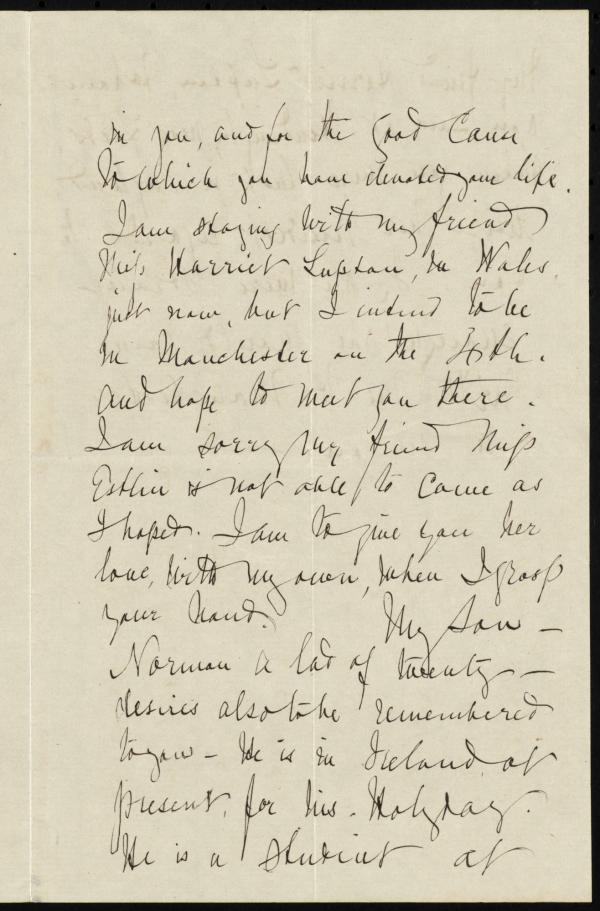 in you, and for the Good Cause
to which you have devoted your life.
I am staying with my friend
Miss Harriet Lupton, in Wales.
just now, but I intend to be
in Manchester on the
and hope to meet you there.
I am sorry my friend Miss
Estlin is not able to come as
I hoped. I am to give you her
love, with my own, when I grasp
your hand. My Son —
Norman a lad of twenty —
desires also to be remembered
to you — He is in Ireland at
present, for his Holyday.
He is a student at